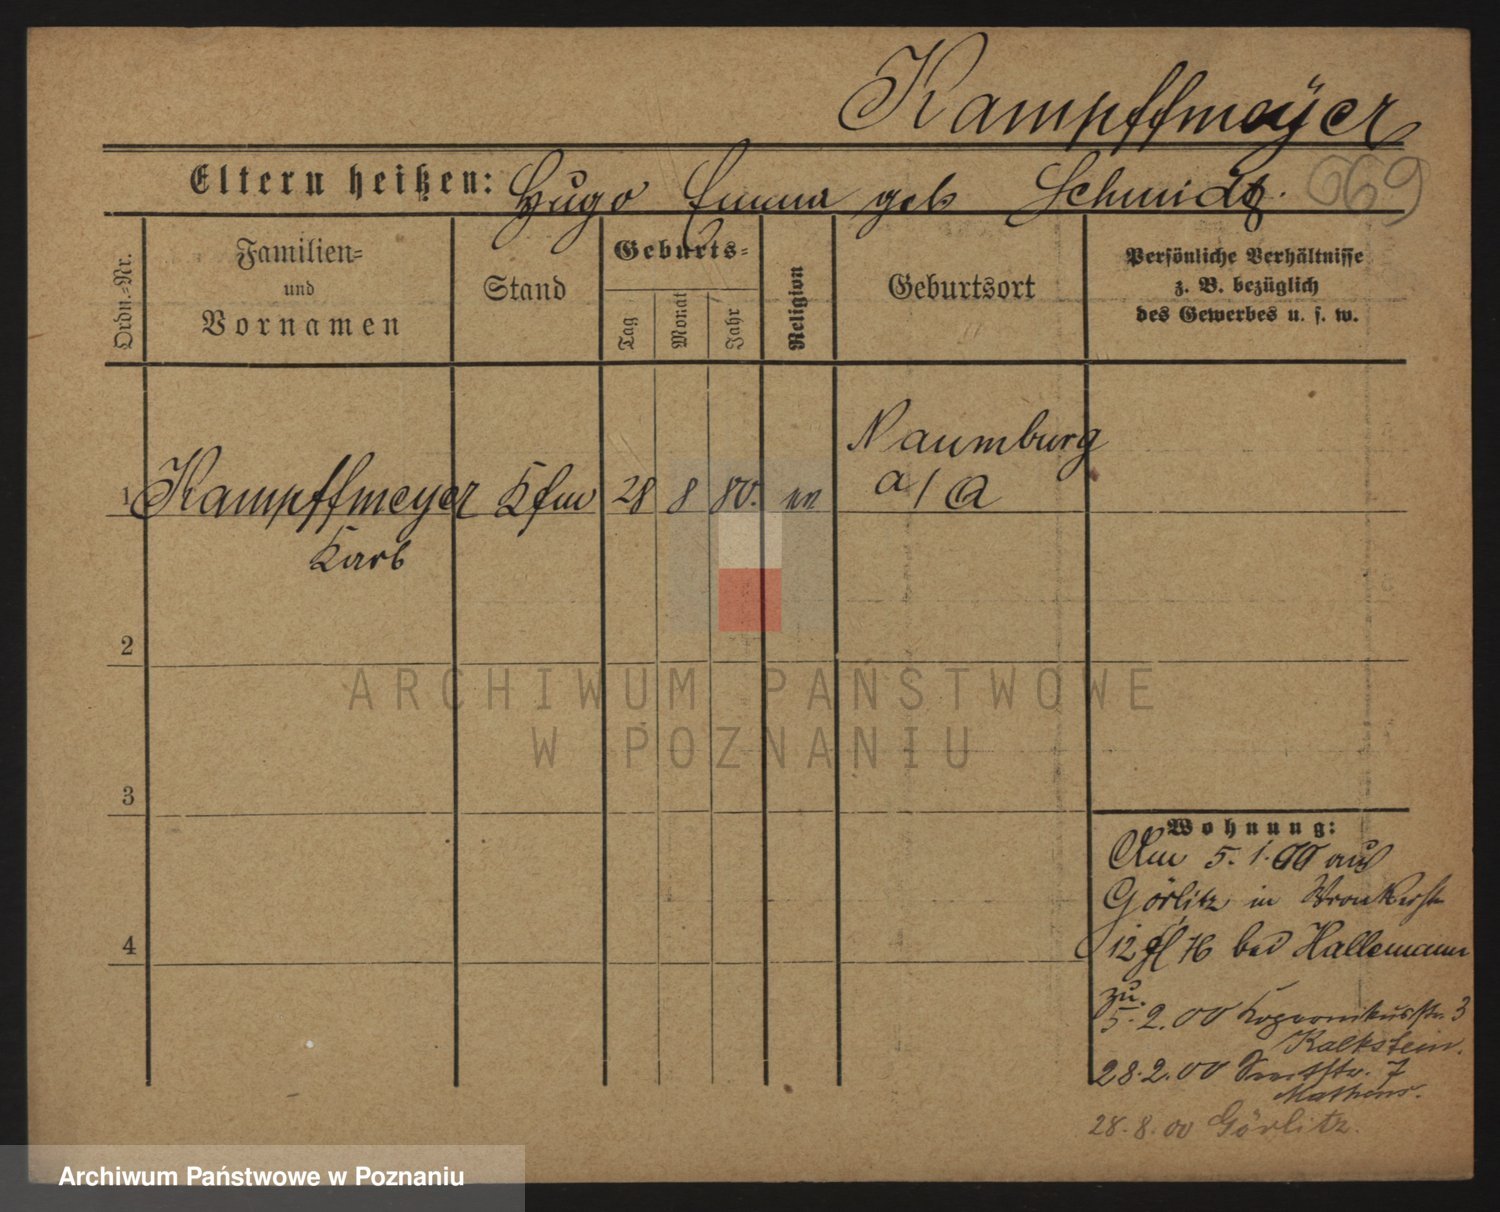 Kampffmeÿer
Eltern heißen: Hugo Emma geb Schmidt.
669
Ordn.-Nr.
Familien-
und
Vornamen
Stand
Geburts-
Tag
Monat
Jahr
Religion
Geburtsort
Persönliche Verhältnisse
z. B. bezüglich
des Gewerbes u. s. w.
Naumburg
1 Kampffmeyer Kfm 28 8 80. a/Q
2
ARCHIWUM PAŃSTWOWE
W POZNANIU
3
Wohnung:
Am 5. 1. 00 aus
Görlitz in Wronkerstr
4
12 bei Hallemann
zu.
5. 2. 00 Kopernikusstr. 3
Kalkstein.
28. 2. 00 7
28. 8. 00 Görlitz.
Archiwum Państwowe w Poznaniu